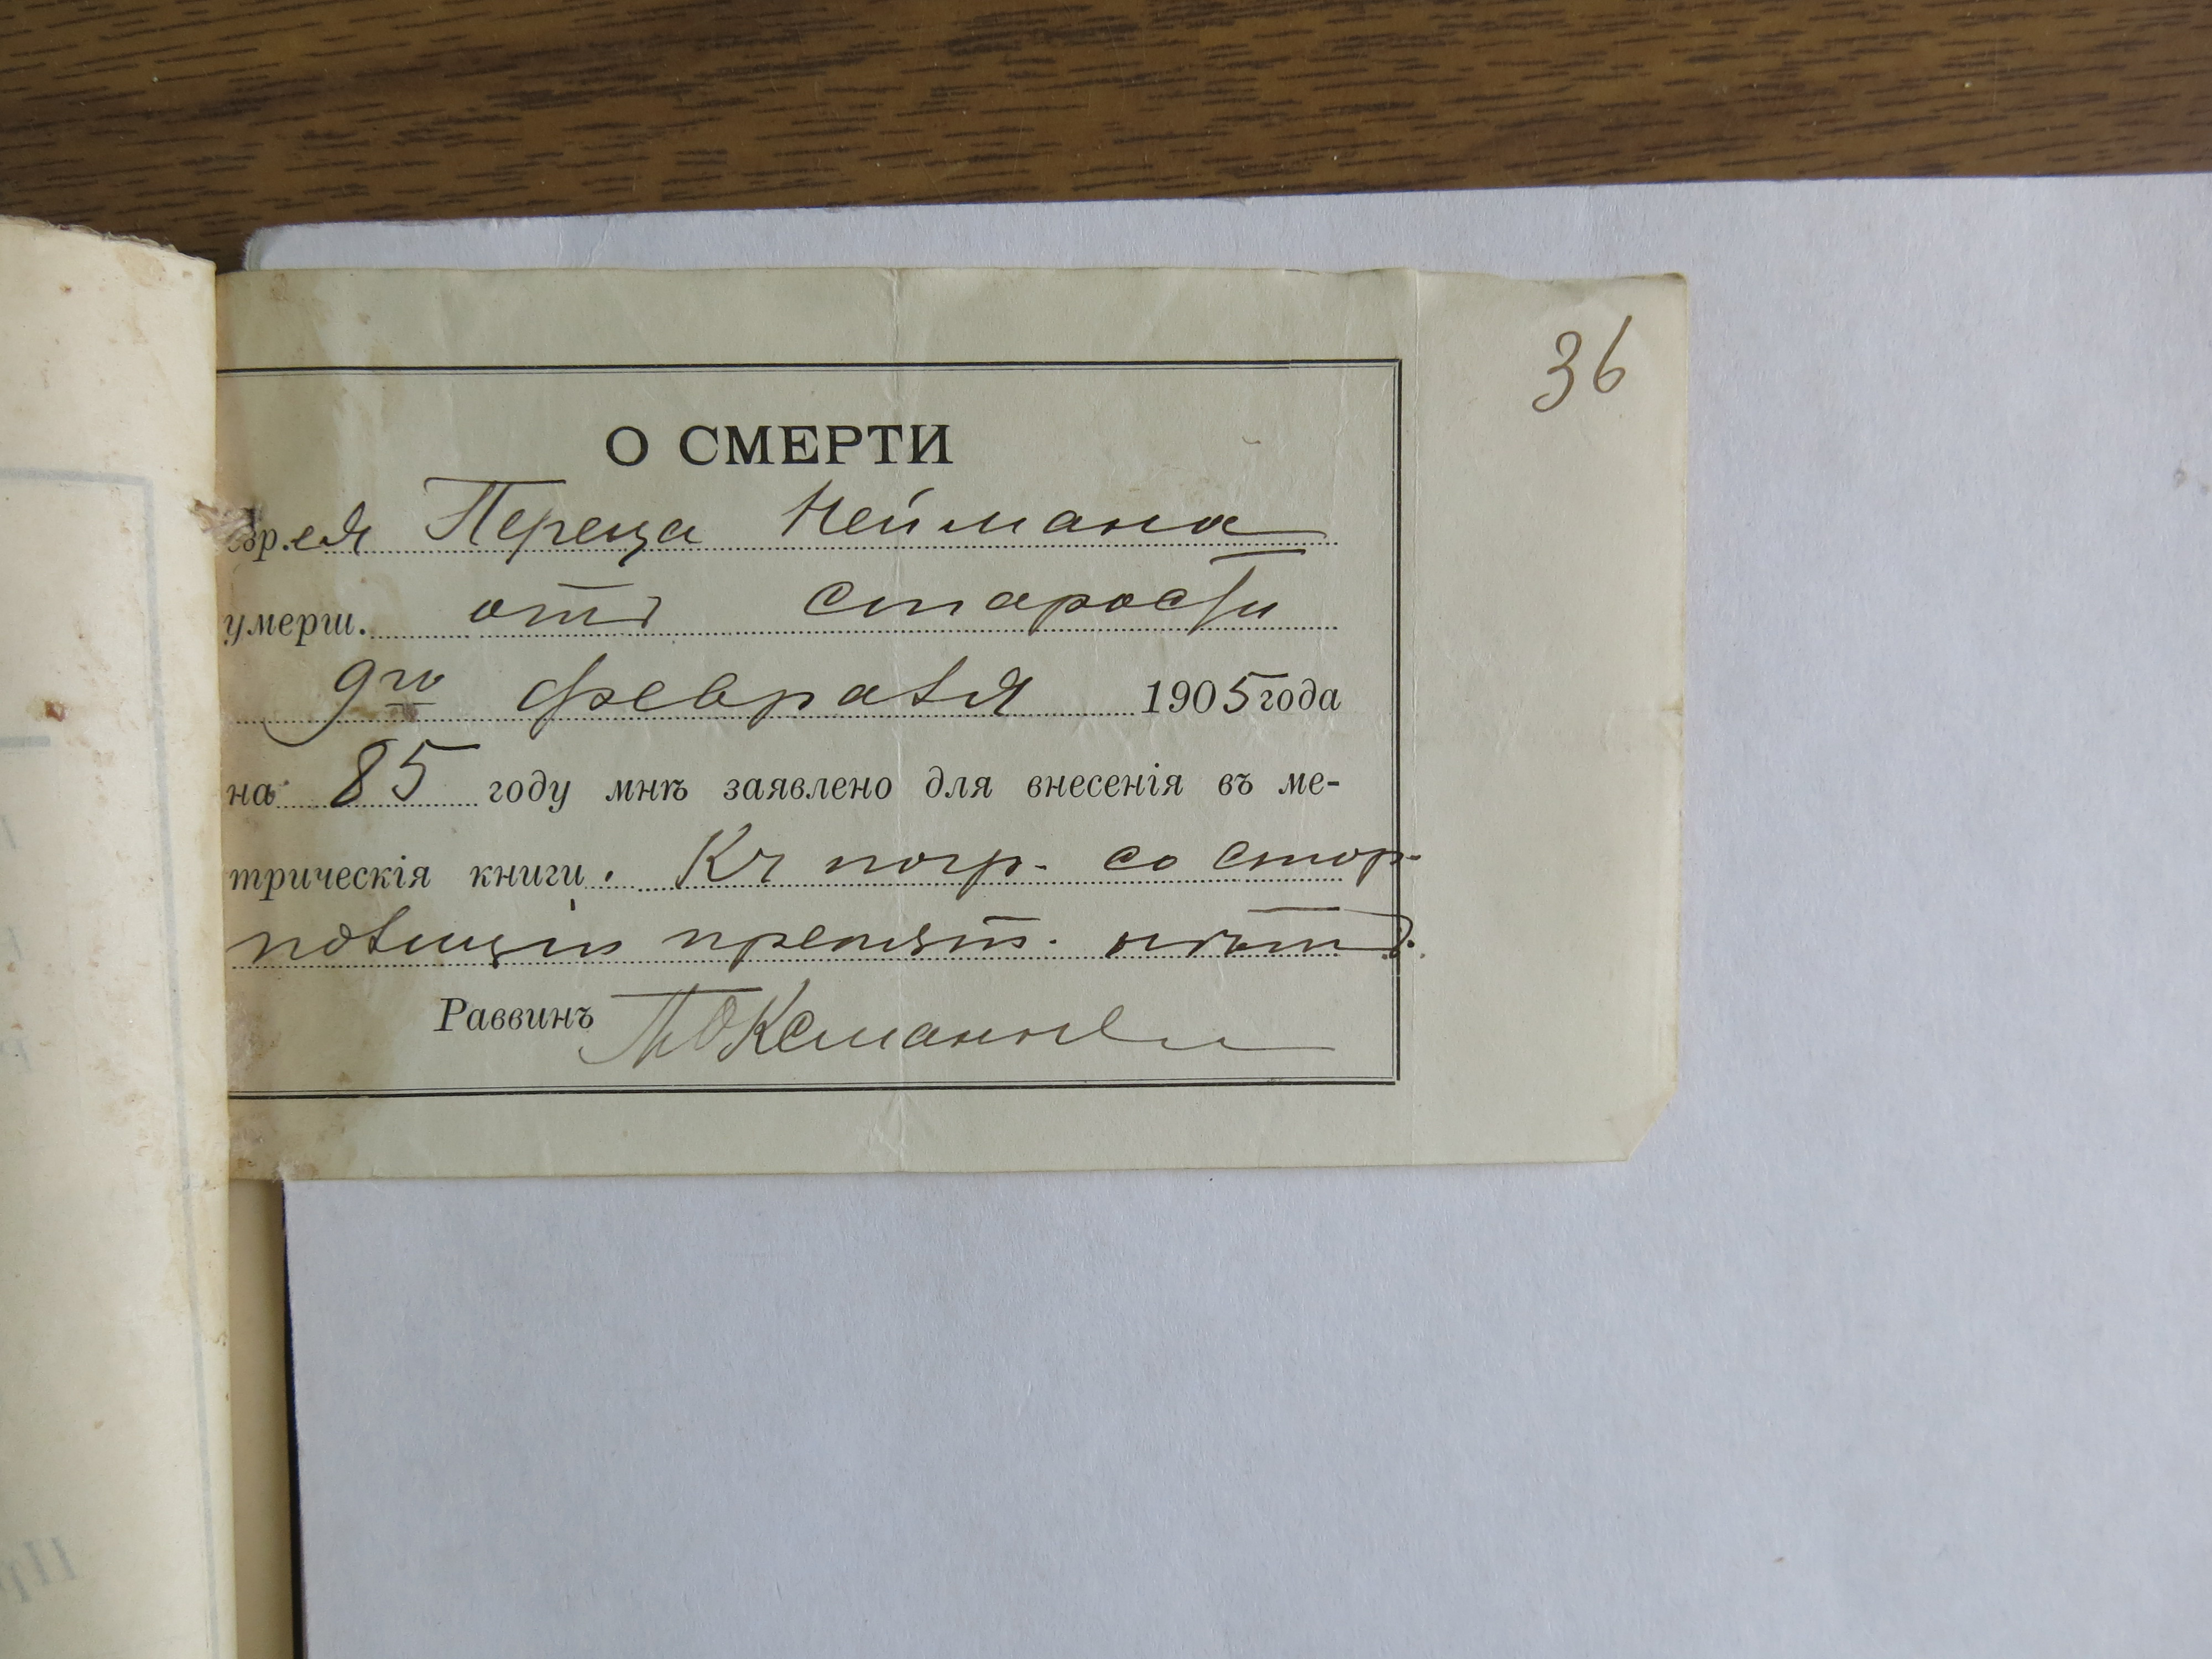 36
О СМЕРТИ
евр.ея Переца Неймана
умерш. отъ старости
9го февраля 1905 года
на 85 году мнѣ заявлено для внесенія въ ме-
трическія книги. Къ погр. со стор.
полиціи препят. нѣтъ.
Раввинъ